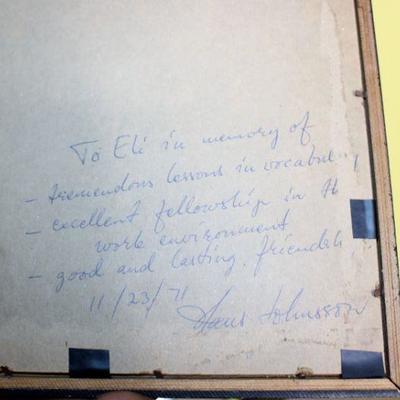 To Eli in memory of
- tremendous lessons in vocabul
- excellent fellowship in th
work environment
- good and lasting friendsh
11/23/71 Hans Johnsson